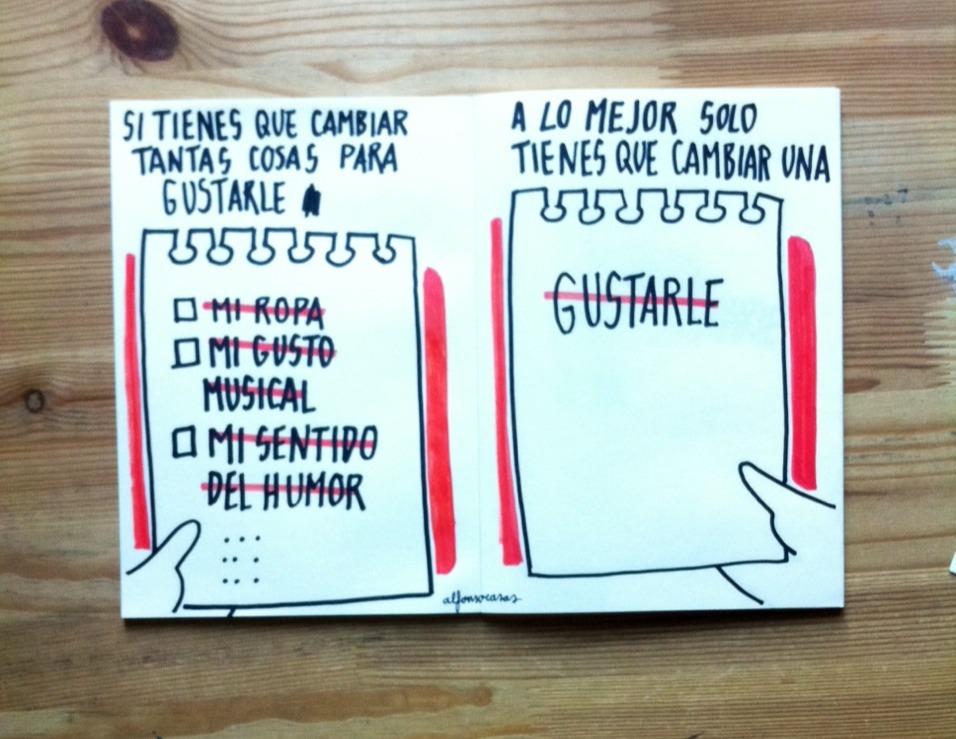 SI TIENES QUE CAMBIAR
TANTAS COSAS PARA
GUSTARLE
MI ROPA
MI GUSTO
MUSICAL
MI SENTIDO
DEL HUMOR
A LO MEJOR SOLO
TIENES QUE CAMBIAR UNA
GUSTARLE
alfonsocasas